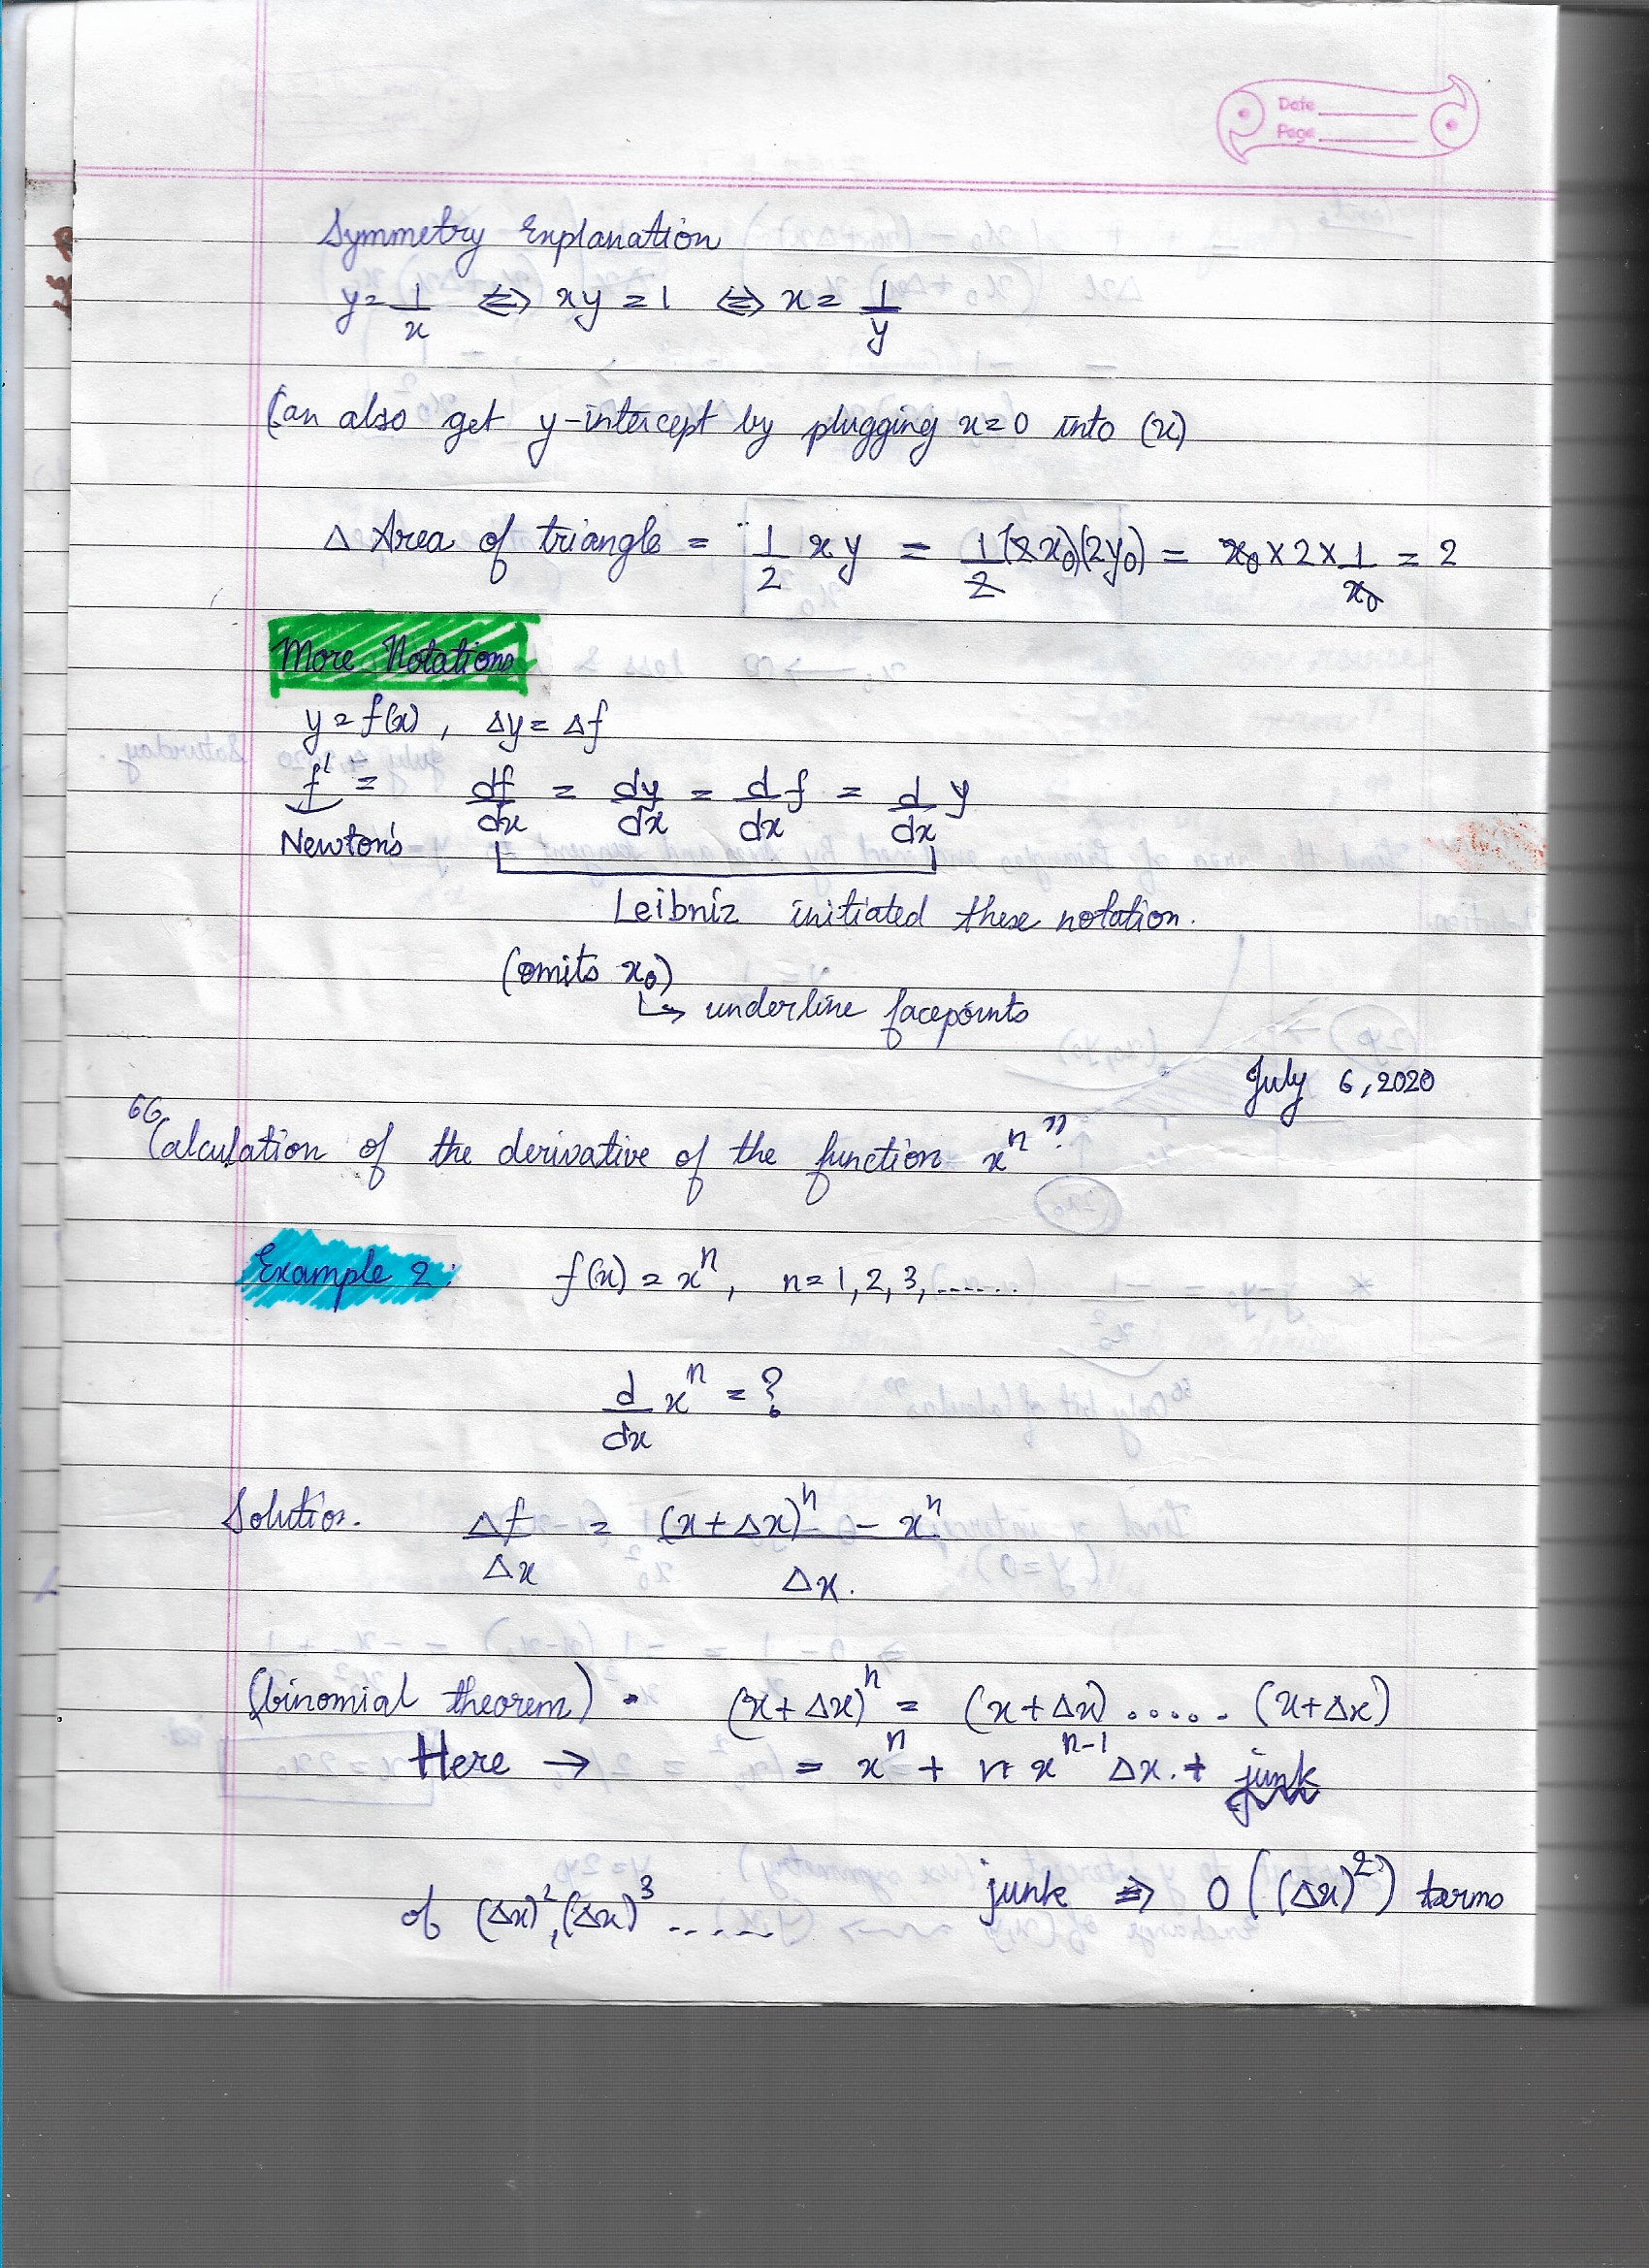 Date
Page
Symmetry Explanation
y = 1/x ⇔ xy = 1 ⇔ x = 1/y
Can also get y-intercept by plugging x=0 into (x)
Δ Area of triangle = 1/2 xy = 1/2 (2x₀)(2y₀) = x₀ × 2 × 1/x₀ = 2
More Notations
y = f(x), Δy = Δf
f' = df/dx = dy/dx = d/dx f = d/dx y
Newton's
Leibniz initiated these notation.
(omits x₀)
↳ underline facepoints
July 6, 2020
"Calculation of the derivative of the function xⁿ"
Example 2: f(x) = xⁿ, n = 1, 2, 3, ......
d/dx xⁿ = ?
Solution. Δf/Δx = ((x+Δx)ⁿ - xⁿ)/Δx.
(binomial theorem) - (x+Δx)ⁿ = (x+Δx) ..... (x+Δx)
Here → = xⁿ + n xⁿ⁻¹ Δx + junk
junk ⇒ O((Δx)²) terms
of (Δx)², (Δx)³ ......